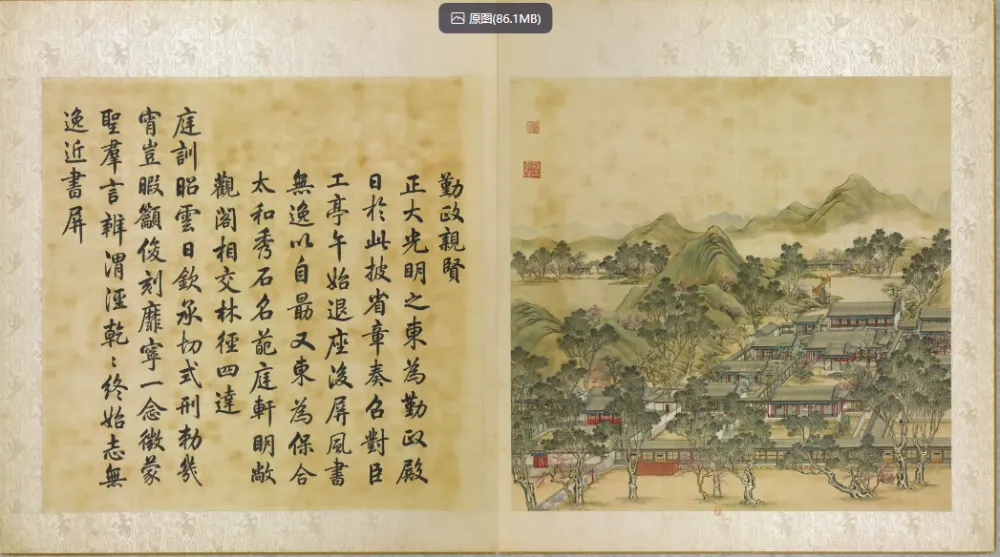 原图(86.1MB)
勤政親賢
正大光明之東為勤政殿
日於此披省章奏召對臣
工亭午始退座後屏風書
無逸以自勗又東為保合
太和秀石名葩庭軒明敞
觀閣相交林徑四達
庭訓昭雲日欽承切式刑勑幾
宵豈暇籲俊刻靡寧一念徵蒙
聖羣言辨渭涇乾〻終始志無
逸近書屏